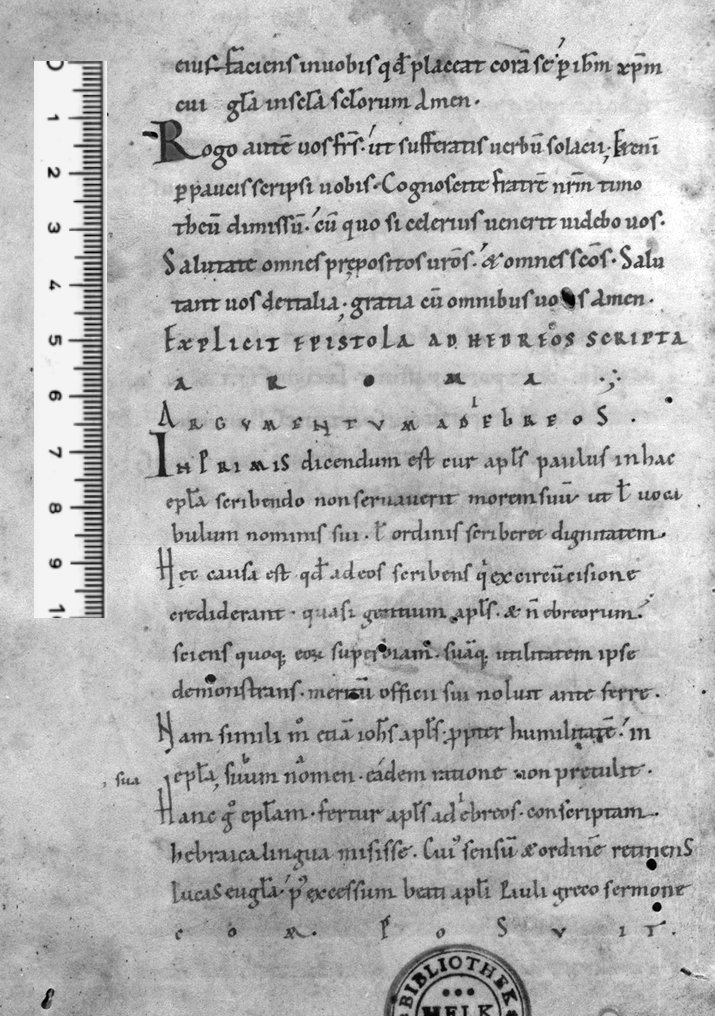 eiuſ faciens inuobis qđ placeat corā ſe ꝑ ihm xp̄m
cui gl̄a inſcl̄a ſcl̄orum Amen.
Rogo autē uos fr̄s. ut ſufferatis uerbū ſolacii, Etenī
ꝑpaucis ſcripſi uobis. Cognoſcite fratrē nr̄m timo
theū dimiſſū. cū quo ſi celerius uenerit uidebo uos.
Salutate omnes prepoſitos uros̄. & omnes ſcōs. Salu
tant uos deitalia, gratia cū omnibus uobis Amen.
EXPLICIT EPISTOLA AD HEBREOS SCRIPTA
A R O M A
ARGVMENTVM AD EBREOS.
IN PRIMIS dicendum eſt cur apl̄s paulus inhac
epl̄a ſcribendo non ſeruauerit morem ſuū ut ł uoca
bulum nominis ſui. ł ordinis ſcriberet dignitatem.
Hec cauſa eſt qđ ad eos ſcribens qͥ ex circūciſione
crediderant. quaſi gentium apl̄s. & n̄ ebreorum.
ſciens quoq; eoꝝ ſuperbiam. ſuāq; utilitatem ipſe
demonſtrans. meritū officii ſui noluit ante ferre.
Nam ſimili m̊ etiā ioh̄s apl̄s. ꝓpter humilitatē. in
, sua epl̄a, ſuum nomen. eadem ratione non pretulit.
Hanc gͦ epl̄am. fertur apl̄s ad ebreos. conſcriptam.
hebraica lingua miſiſſe. Cuiꝰ ſenſū & ordinē retinens
Lucas eugl̄a. pꝰ exceſſum beati apl̄i Pauli greco ſermone
C O M P O S V I T.
8
0
1
2
3
4
5
6
7
8
9
BIBLIOTHEK
MELK